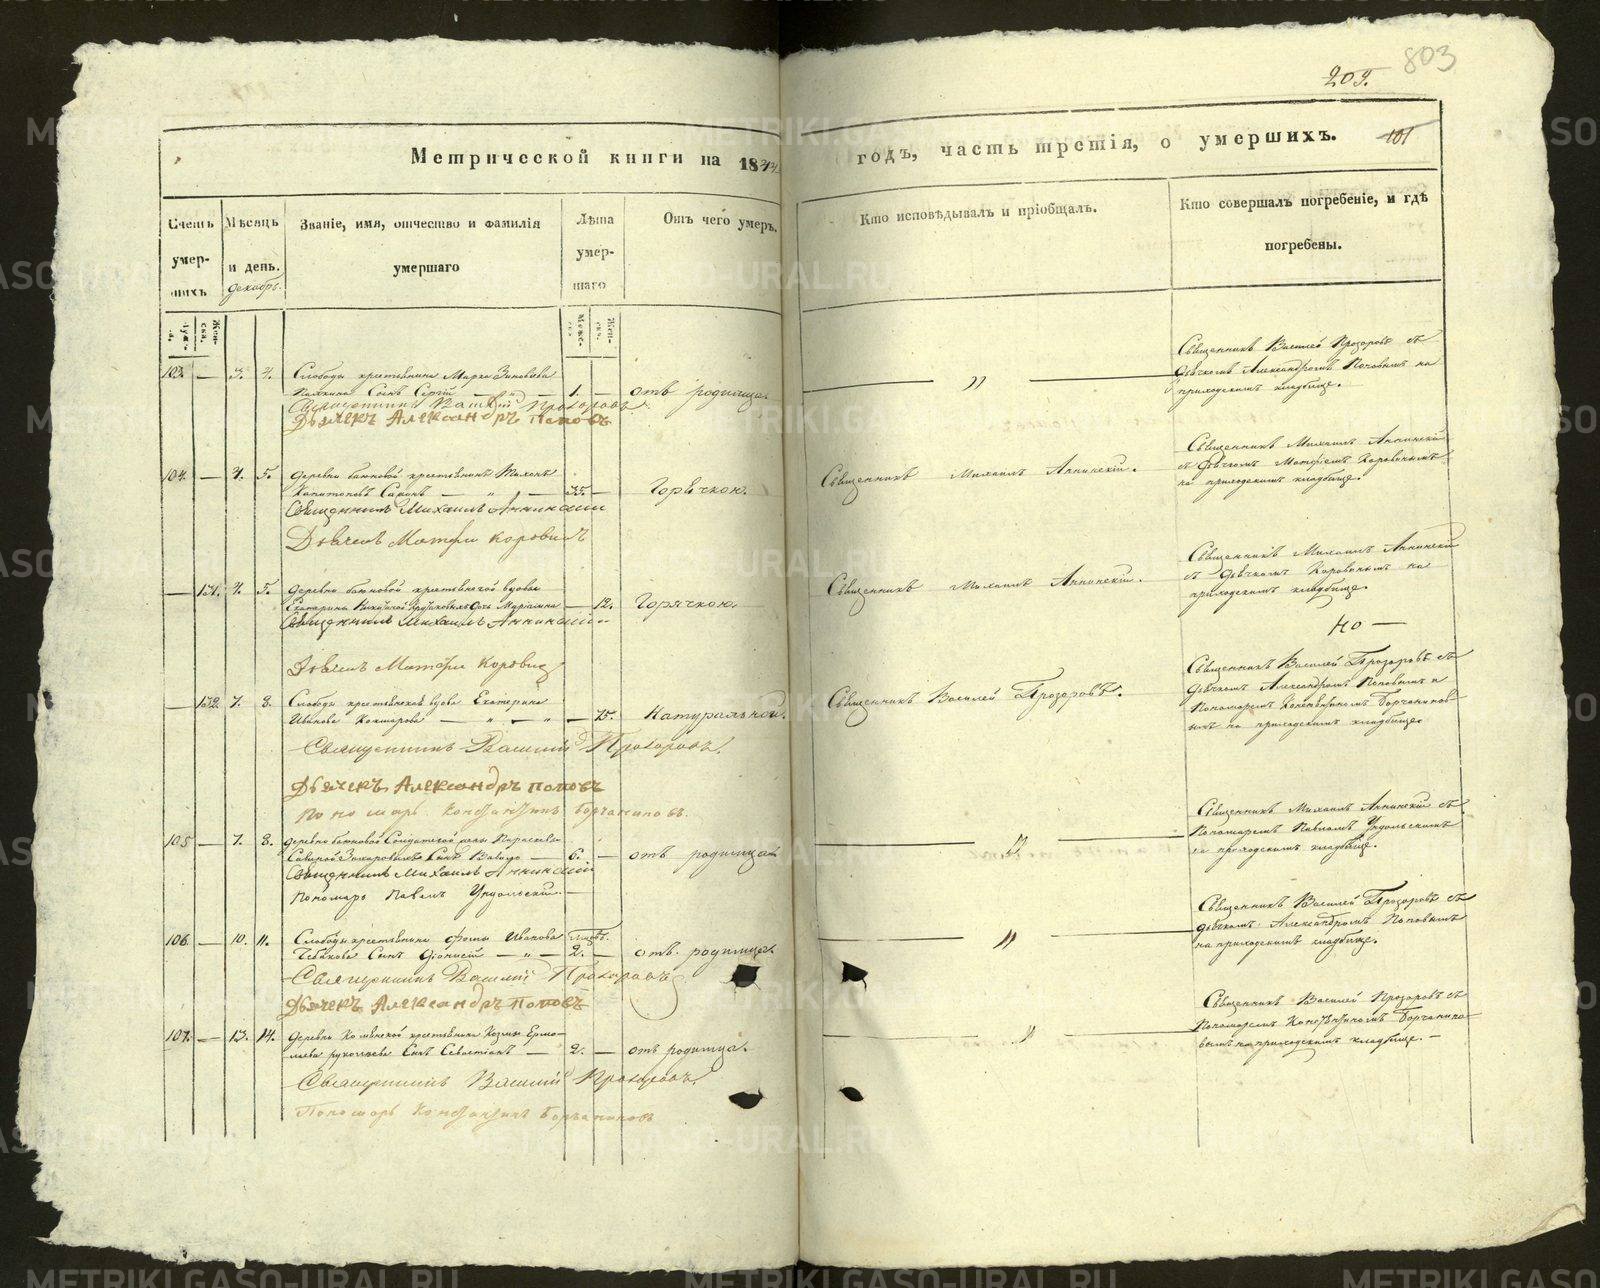 803
209.
101
Метрической книги на 1844
годъ, часть третія, о умершихъ.
Счетъ умер-шихъ
Мѣсяцъ и день.
декабрь.
Званіе, имя, отчество и фамилія умершаго
Лѣта умер-шаго
Отъ чего умеръ.
Кто исповѣдывалъ и пріобщалъ.
Кто совершалъ погребеніе, и гдѣ погребены.
103. — 3. 4. Слободы крестьянина Марка Зиновьева
сынъ Сергій — „ — 1. — отъ родимца.
Священникъ Василій Прозоровъ
Дьячекъ Александръ Поповъ
— „ —
Священникъ Василей Прозоровъ съ
дьячкомъ Александромъ Поповымъ на
приходскомъ кладбище.
104. — 4. 5. деревни баяновой крестьянинъ Тихонъ
Капитоновъ — „ — 35. — Горячкою.
Священникъ Михаилъ Аннинскій
Дьячекъ Матфей Коровинъ
Священникъ Михаилъ Аннинскій.
Священникъ Михаилъ Аннинскій
съ дьячкомъ Матфеемъ Коровинымъ
на приходскомъ кладбище.
— 131. 4. 5. деревни баяновой крестьянской вдовы
Екатерины дочь — 12. Горячкою.
Священникъ Михаилъ Аннинскій
Дьячекъ Матфей Коровинъ
Священникъ Михаилъ Аннинскій.
Священникъ Михаилъ Аннинскій
съ дьячкомъ Коровинымъ на
приходскомъ кладбище.
но —
— 132. 7. 8. Слободы крестьянская вдова Екатерина
Иванова — „ — „ — 75. Натуральной.
Священникъ Василій Прозоровъ.
Дьячекъ Александръ Поповъ
Пономарь Константинъ Борчаниновъ.
Священникъ Василей Прозоровъ.
Священникъ Василей Прозоровъ съ
дьячкомъ Александромъ Поповымъ и
Пономаремъ Константиномъ Борчанинов
ымъ на приходскомъ кладбище
105 — 7. 8. деревни баяновой Солдатской жены Парасковьи
сынъ Вавило — 6. — отъ родимца
Священникъ Михаилъ Аннинскій
Пономарь Павелъ Ундольскій —
— „ —
Священникъ Михаилъ Аннинскій съ
Пономаремъ Павломъ Ундольскимъ
на приходскомъ кладбище.
106. — 10. 11. Слободы крестьянина Фомы Иванова
сынъ Діонисій — „ — 2. — отъ родимца.
Священникъ Василій Прозоровъ
Дьячекъ Александръ Поповъ
— „ —
Священникъ Василей Прозоровъ съ
дьячкомъ Александромъ Поповымъ
на приходскомъ кладбище.
107. — 13. 14. деревни крестьянина Козмы Ермо-
лаева сынъ Севастіянъ — 2. — отъ родимца.
Священникъ Василій Прозоровъ
Пономарь Константинъ Борчаниновъ
— „ —
Священникъ Василей Прозоровъ съ
Пономаремъ Константиномъ Борчанино-
вымъ на приходскомъ кладбище. —
METRIKI.GASO-URAL.RU